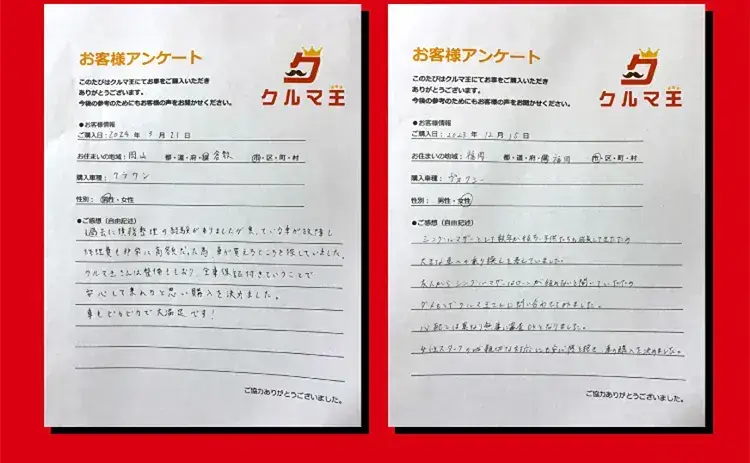 お客様アンケート
クルマ王
このたびはクルマ王にてお車をご購入いただき
ありがとうございます。
今後の参考のためにもお客様の声をお聞かせください。
●お客様情報
ご購入日:2024 年 3 月 21 日
お住まいの地域: 岡山 都・道・府・県 倉敷 市・区・町・村
購入車種: クラウン
性別: 男性・女性
●ご感想(自由記述)
過去に債務整理の経験がありましたが 乗っていた車が故障し
修理費も非常に高額だった為、車が買えるところを探していました。
クルマ王さんは整備もしており、全車保証付きということで
安心して乗れると思い購入を決めました。
車もピカピカで大満足です!
ご協力ありがとうございました。
お客様アンケート
クルマ王
このたびはクルマ王にてお車をご購入いただき
ありがとうございます。
今後の参考のためにもお客様の声をお聞かせください。
●お客様情報
ご購入日:2023 年 12 月 15 日
お住まいの地域: 福岡 都・道・府・県 福岡 市・区・町・村
購入車種: ヴォクシー
性別: 男性・女性
●ご感想(自由記述)
シングルマザーとして数年が経ち、子供たちも成長してきたので
大きな車への乗り換えを考えていました。
友人からシングルマザーはローンが組めないと聞いていたので
ダメもとでクルマ王さんに問い合わせてみました。
心配とは異なり無事に審査OKとなりました。
女性スタッフの親切な対応にも安心感を感じ、車の購入を決めました。
ご協力ありがとうございました。